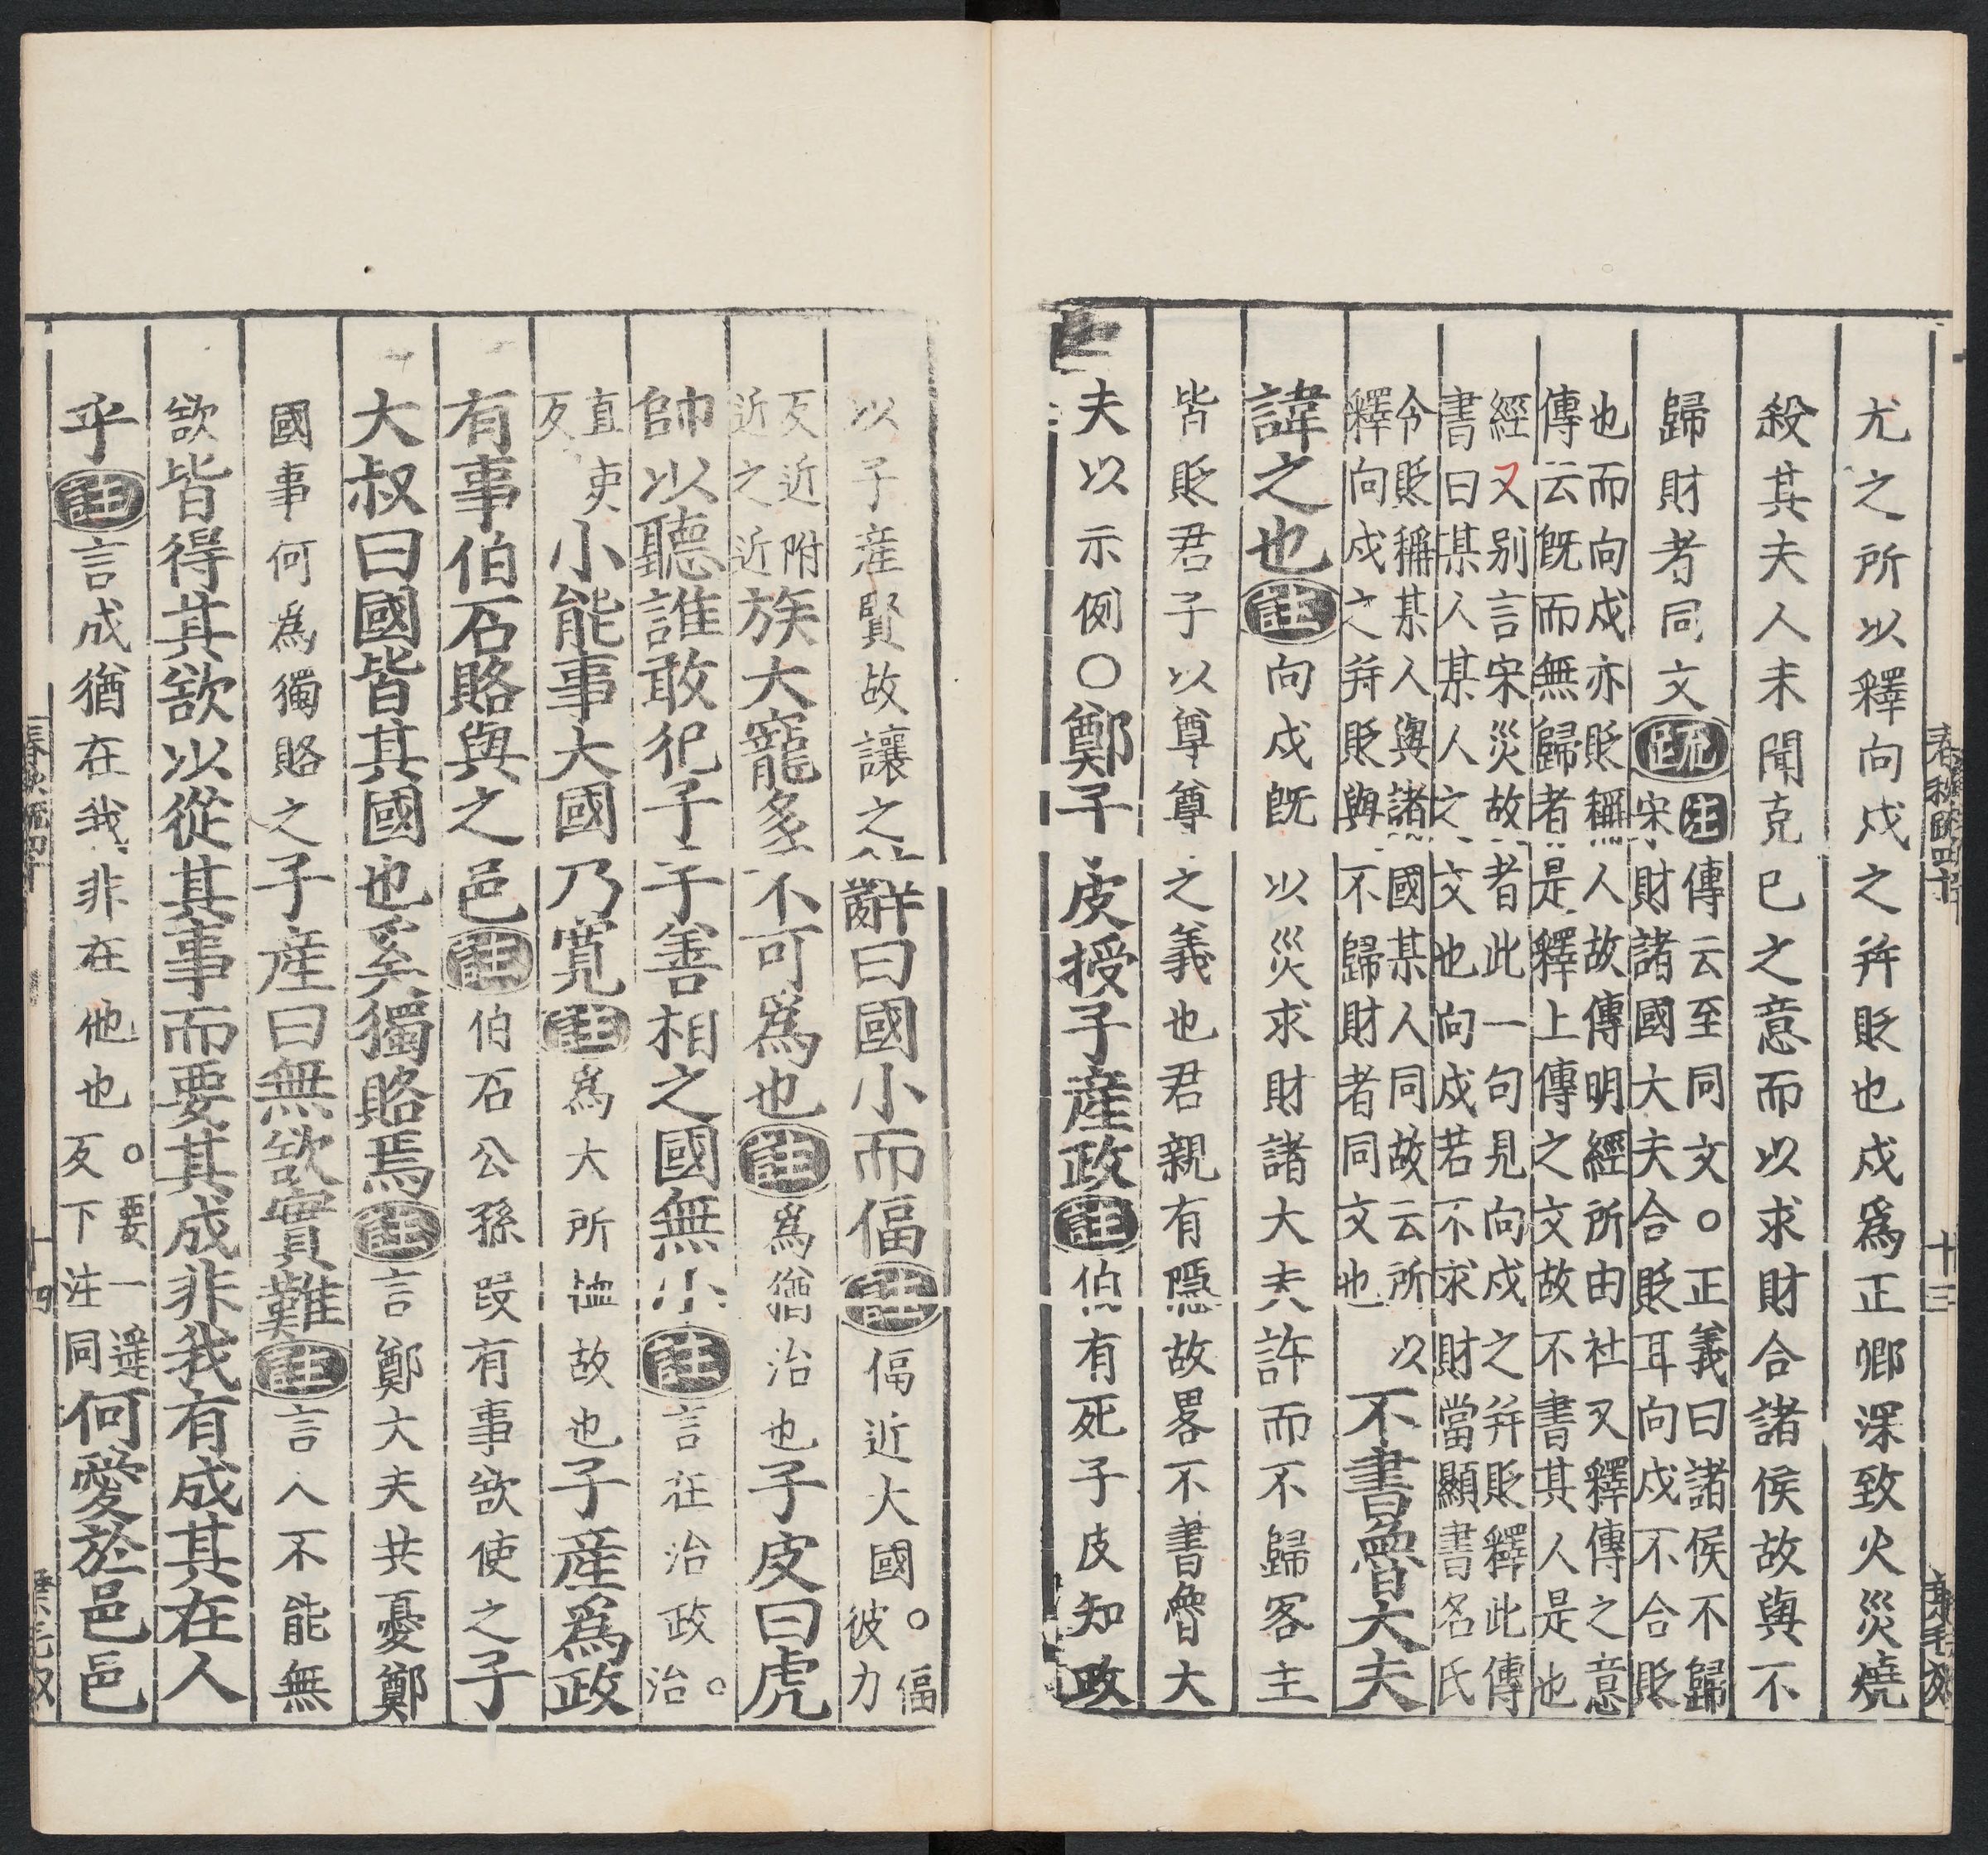 尤之所以釋向戍之并貶也戍爲正卿深致火災燒
殺其夫人未聞克已之意而以求財合諸侯故與不
歸財者同文疏注傳云至同文○正義曰諸侯不歸
宋財諸國大夫合貶耳向戍不合貶
也而向戍亦貶稱人故傳明經所由社又釋傳之意
傳云旣而無歸者是釋上傳之文故不書其人是也
經又别言宋災故者此一句見向戍之并貶釋此傳
書曰某人某人之文也向戍若不求財當顯書名氏
今貶稱某人與諸國某人同故云所以
釋向戍之并貶與不歸財者同文也不書魯大夫
諱之也註向戍旣以災求財諸大夫許而不歸客主
皆貶君子以尊尊之義也君親有隱故畧不書魯大
夫以示例○鄭子皮授子產政註伯有死子皮知政
以子產賢故讓之辭曰國小而偪註偪近大國○偪
彼力
反近附
近之近族大寵多不可爲也註爲猶治也子皮曰虎
帥以聽誰敢犯子子善相之國無小註言在治政○治
直吏
反小能事大國乃寛註爲大所恤故也子產爲政
有事伯石賂與之邑註伯石公孫段有事欲使之子
大叔曰國皆其國也奚獨賂焉註言鄭大夫共憂鄭
國事何爲獨賂之子產曰無欲實難註言人不能無
欲皆得其欲以從其事而要其成非我有成其在人
乎註言成猶在我非在他也○要一遥
反下注同何愛於邑邑
春秋疏四十
十三
十四